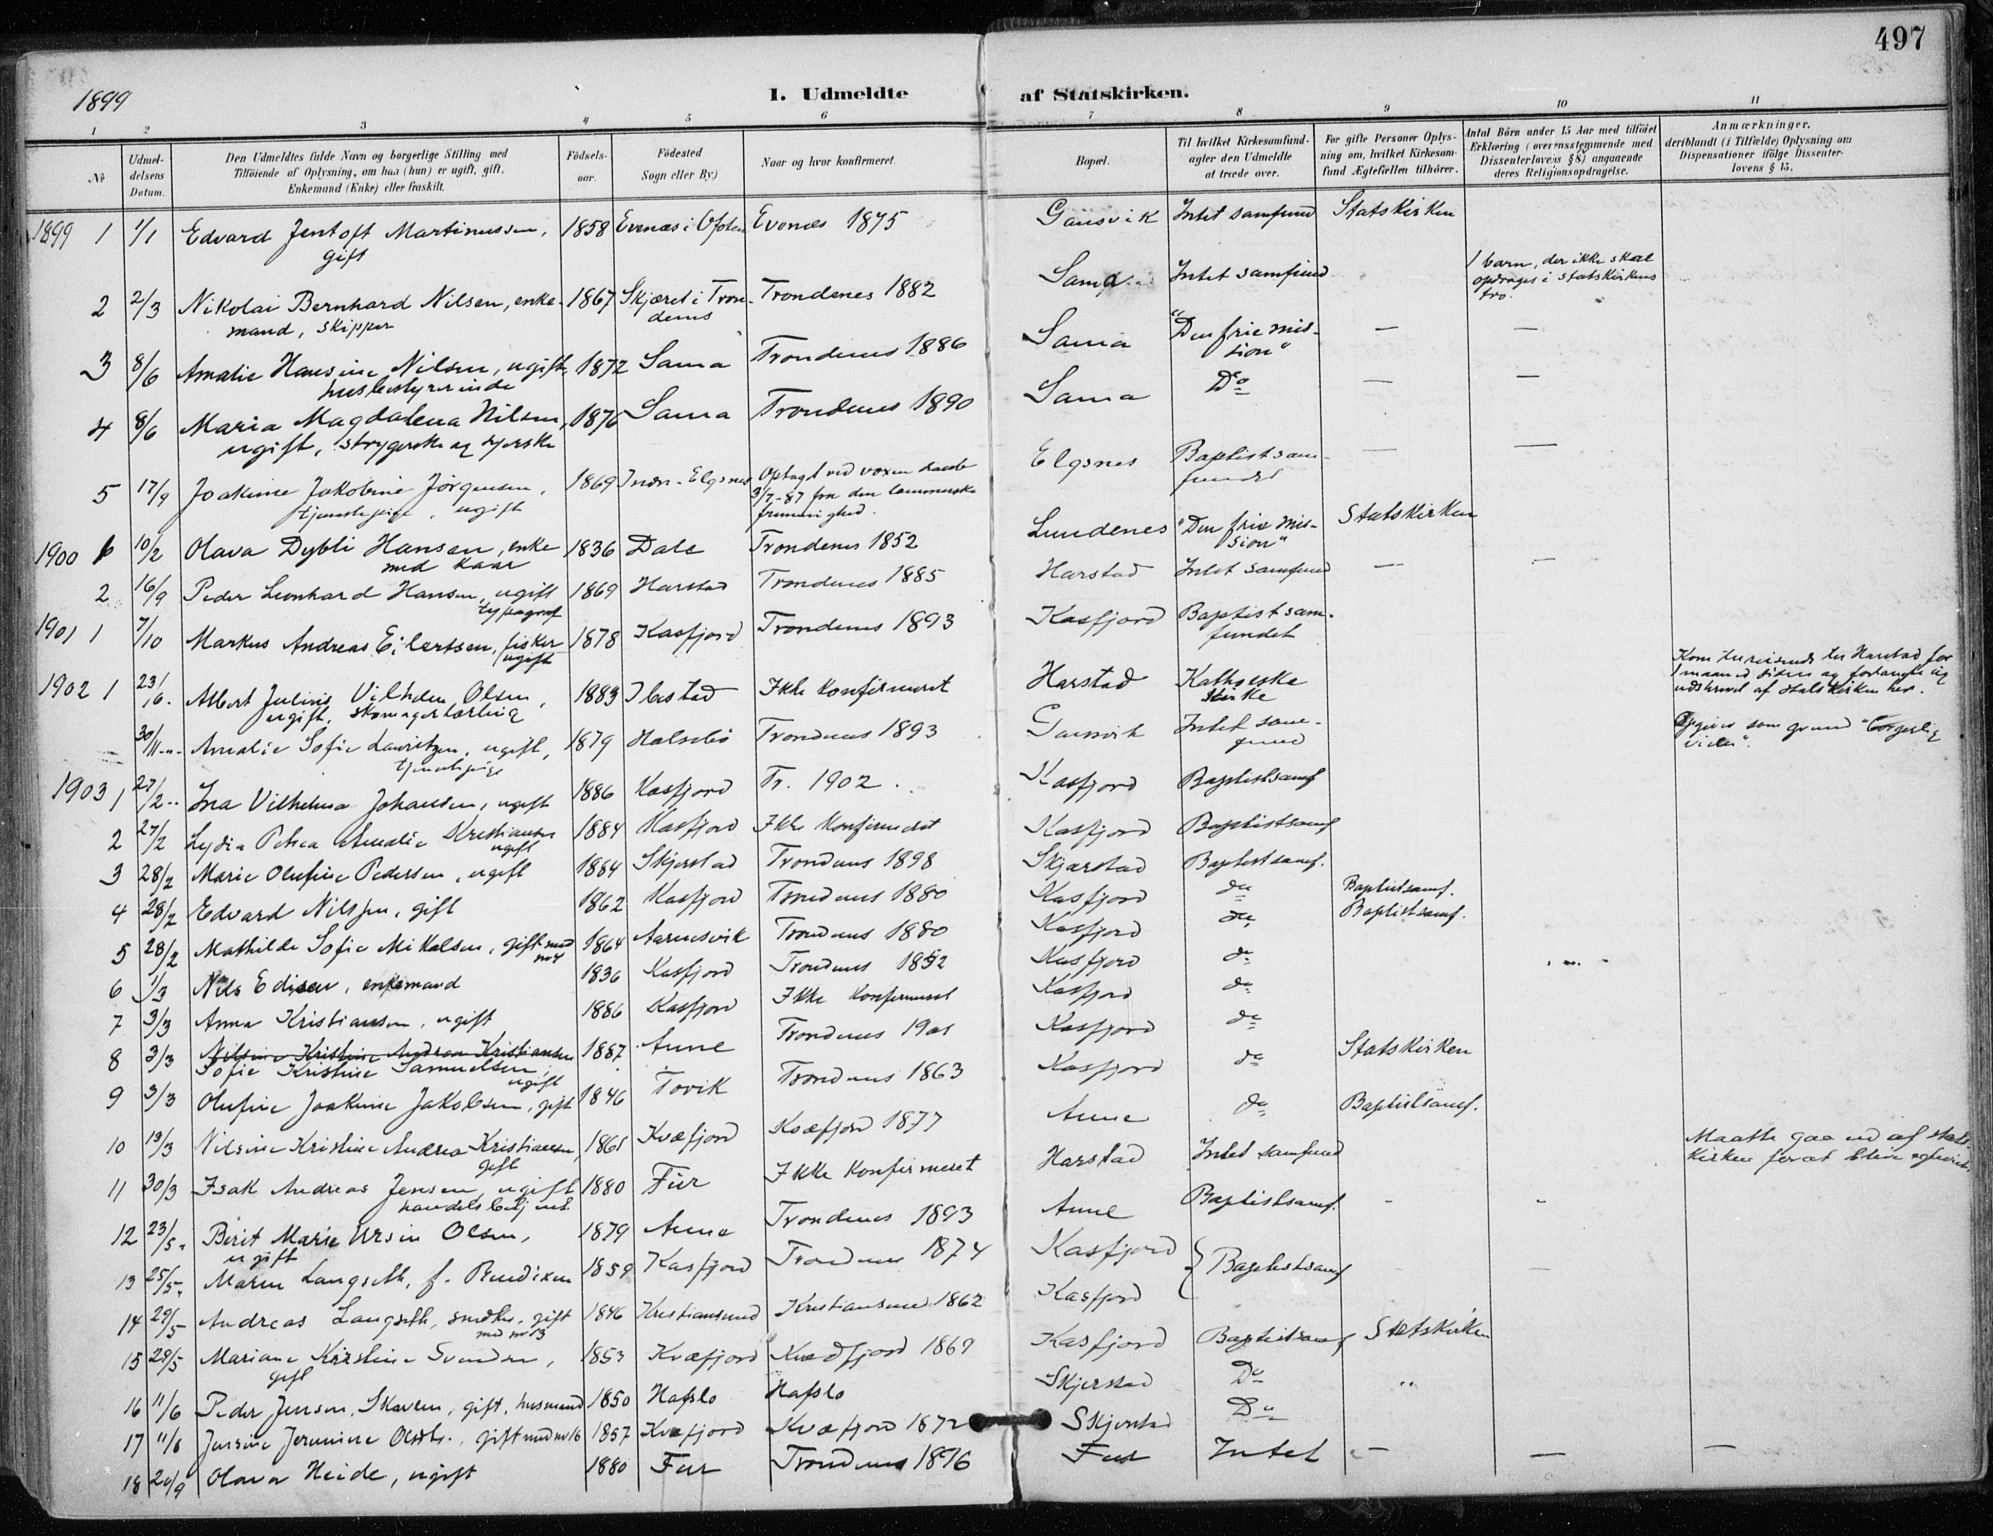 497
1899
I. Udmeldte af Statskirken.
1 2 3 4 5 6 7 8 9 10 11
No
Udmel-
delsens
Datum.
Den Udmeldtes fulde Navn og borgerlige Stilling med
Tilføiende af Oplysning, om han (hun) er ugift, gift,
Enkemand (Enke) eller fraskilt.
Fødsels-
aar.
Fødested
Sogn eller By.)
Naar og hvor konfirmeret.
Bopæl.
Til hvilket Kirkesamfund-
agter den Udmeldte
at træde over.
For gifte Personer Oplys-
ning om, hvilket Kirkesam-
fund Ægtefællen tilhører.
Antal Børn under 15 Aar med tilføiet
Erklæring (overensstemmende med
Dissenterlovens § 8) angaaende
deres Religionsopdragelse.
Anmærkninger,
deriblandt (i Tilfælde) Oplysning om
Dispensationer ifølge Dissenter-
lovens § 15.
1899 1 1/1 Edvard Jentoft Martinussen, 1858 Evenæs i Ofoten Evenæs 1875 Gausvik Intet samfund Statskirken
gift
2 2/3 Nikolai Bernhard Nilsen, enke- 1867 Skjæret i Tron- Trondenes 1882 Sama Intet samfund - 1 barn, der ikke skal
mand, skipper denes opdrages i statskirkens
tro.
3 8/6 Amalie Hansine Nilsen, ugift, 1872 Sama Trondenes 1886 Sama "Den frie mis- — —
husbestyrerinde sion"
4 8/6 Maria Magdalena Nilsen, 1876 Sama Trondenes 1890 Sama Do — —
ugift, strygerske og syerske
5 17/9 Joakime Jakobine Jörgensen, 1869 Indre-Elgsnes Optaget ved voxen daab Elgsnes Baptistsam- — —
tjenestepige, ugift 3/7-87 fra den fundet
1900 6 10/2 Olava Dybli Hansen, enke 1836 Dale Trondenes 1852 Lundenes "Den frie mis- Statskirken
med kaar sion"
2 16/9 Peder Leonhard Hansen, ugift 1869 Harstad Trondenes 1885 Harstad Intet samfund — —
typograf
1901 1 7/10 Markus Andreas Eilertsen, fisker 1878 Kasfjord Trondenes 1893 Kasfjord Baptistsam-
ugift fundet
1902 1 23/6 Albert Julius Vilhelm Olsen, 1883 Ibestad Ikke konfirmeret Harstad Katholske Kom tilreisende til Harstad for
ugift, skomagerlærling kirke 1 maaned siden og forlangte sig
udskrevet af statskirken her.
30/11 Amalie Sofie Lauritzen, ugift, 1879 Halsebö Trondenes 1893 Gausvik Intet sam- Opgiver som grund "borgerlig
tjenestepige fund vielse".
1903 1 27/2 Ina Vilhelma Johansen, ugift 1886 Kasfjord Tr. 1902. Kasfjord Baptistsamf
2 27/2 Lydia Petrea Amalie Kristiansen 1884 Kasfjord Ikke konfirmeret Kasfjord Baptistsamf
ugift
3 28/2 Marie Olufine Pedersen, ugift 1884 Skjerstad Trondenes 1898 Skjærstad Baptistsamf.
4 28/2 Edvard Nilssen, gift 1862 Kasfjord Trondenes 1880 Kasfjord do Baptistsamf.
5 28/2 Mathilde Sofie Mikalsen, gift med 1864 Aarnesvik Trondenes 1880 Kasfjord do Baptistsamf.
no 4
6 1/3 Nils Edisen, enkemand 1836 Kasfjord Trondenes 1852 Kasfjord do
7 3/3 Anna Kristiansen, ugift 1886 Kasfjord Ikke konfirmeret Kasfjord do
8 3/3 Nilsine Kristine Andrea Kristiansen 1887 Aune Trondenes 1901 Kasfjord do
Sofie Kristine Samuelsen,
ugift
9 3/3 Olufine Joakime Jakobsen, gift 1846 Tovik Trondenes 1863 Kasfjord do Statskirken
10 13/3 Nilsine Kristine Andrea Kristiansen, 1861 Kvæfjord Kvæfjord 1877 Aune do Baptistsamf.
gift
11 30/3 Isak Andreas Jensen, ugift 1880 Fur Ikke konfirmeret Harstad Intet samfund Maatte gaa ud af stats
handelsbetjent kirken forat blive
12 23/5 Berit Marie Ursin Olsen, 1879 Aune Trondenes 1893 Aune Baptistsamf. - -
ugift
13 25/5 Maren Langseth, f. Bendixen 1859 Kasfjord Trondenes 1874 Kasfjord Baptistsamf —
14 29/5 Andreas Langseth, snedker, gift 1846 Kristiansund Kristiansund 1862 Kasfjord
med no 13
15 29/5 Mariane Kirstine Svendsen, 1853 Kvæfjord Kvædfjord 1869 Kasfjord Baptistsamf Statskirken
gift
16 11/6 Peder Jenson Skaren, gift, husmand 1850 Hafslo Hafslo Skjerstad Do "
17 11/6 Jensine Jeremine Olsdtr., gift med no 16 1857 Kvæfjord Kvæfjord 1872 Skjerstad Do
18 20/9 Olava Heide, ugift 1880 Fur Trondenes 1896 Fur Intet — — —